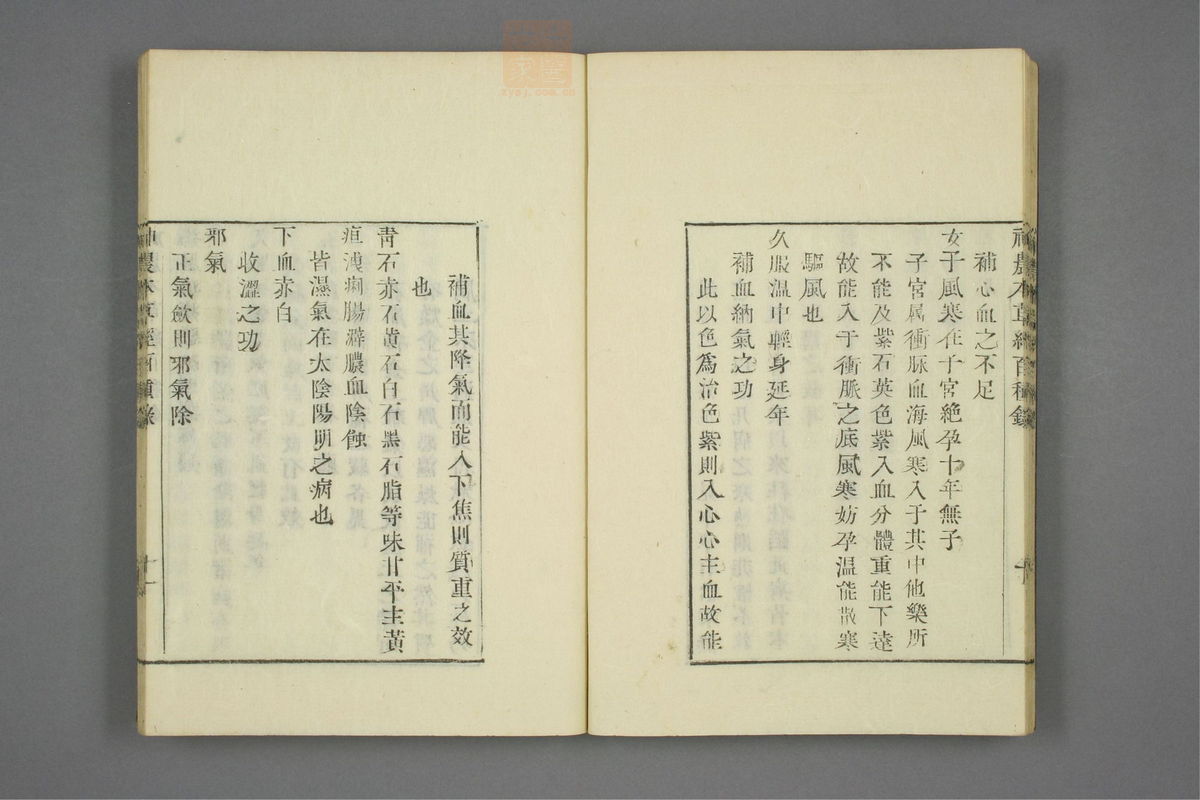 補心血之不足
女子風寒在子宮絶孕十年無子
子宮屬衝脈血海風寒入于其中他藥所
不能及紫石英色紫入血分體重能下達
故能入于衝脈之底風寒妨孕温能散寒
驅風也
久服温中輕身延年
補血納氣之功
此以色爲治色紫則入心心主血故能
補血其降氣而能入下焦則質重之效
也
青石赤石黃石白石黑石脂等味甘平主黃
疸洩痢腸澼膿血陰蝕
皆濕氣在太陰陽明之病也
下血赤白
收澀之功
邪氣
正氣斂則邪氣除
神農本草經百種錄
十一
zysj.com.cn